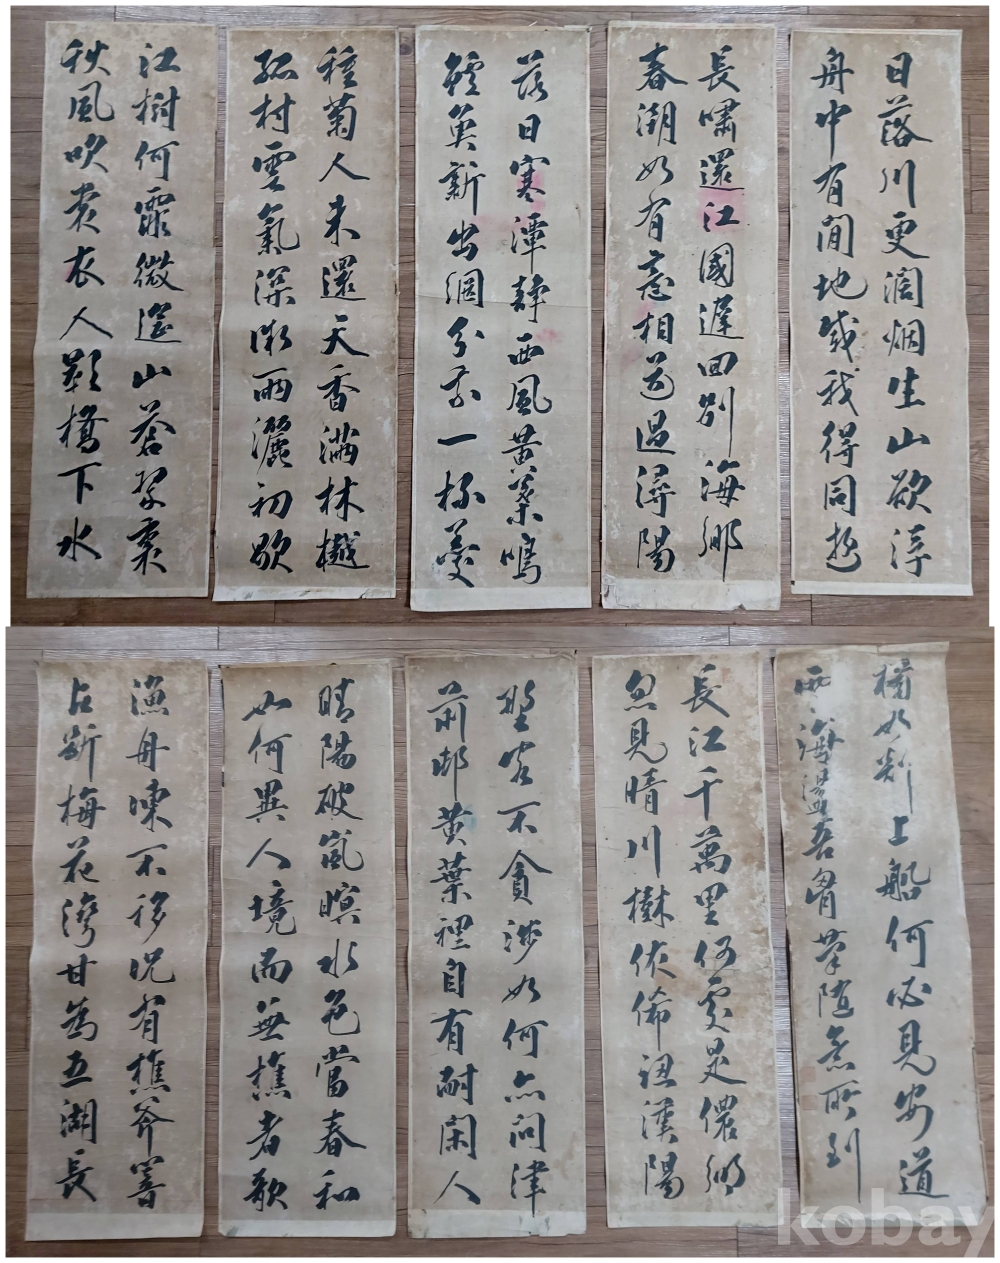 日落川更濶烟生山欲浮
舟中有閒地載我得同遊
長嘯還江國遲回別海鄉
春潮如有意相過潯陽
落日寒潭靜西風黃葉鳴
新出網分一杯羹
種菊人未還天香滿林樾
孤村雲氣深微雨灑初歇
江樹何霏微遙山蒼翠裏
秋風吹衣人影橋下水
如剡上船何必見安道
海盪吾胷筆隨意所到
長江千萬里何處是儂鄉
忽見晴川樹依俙認漢陽
野客不貪涉如何亦問津
前邨黃葉裡自有耐閑人
晴陽破嵐暝水色當春和
如何異人境而無樵者歌
漁舟凍不移況有樵斧響
占斷梅花灣甘為五湖長
kobay